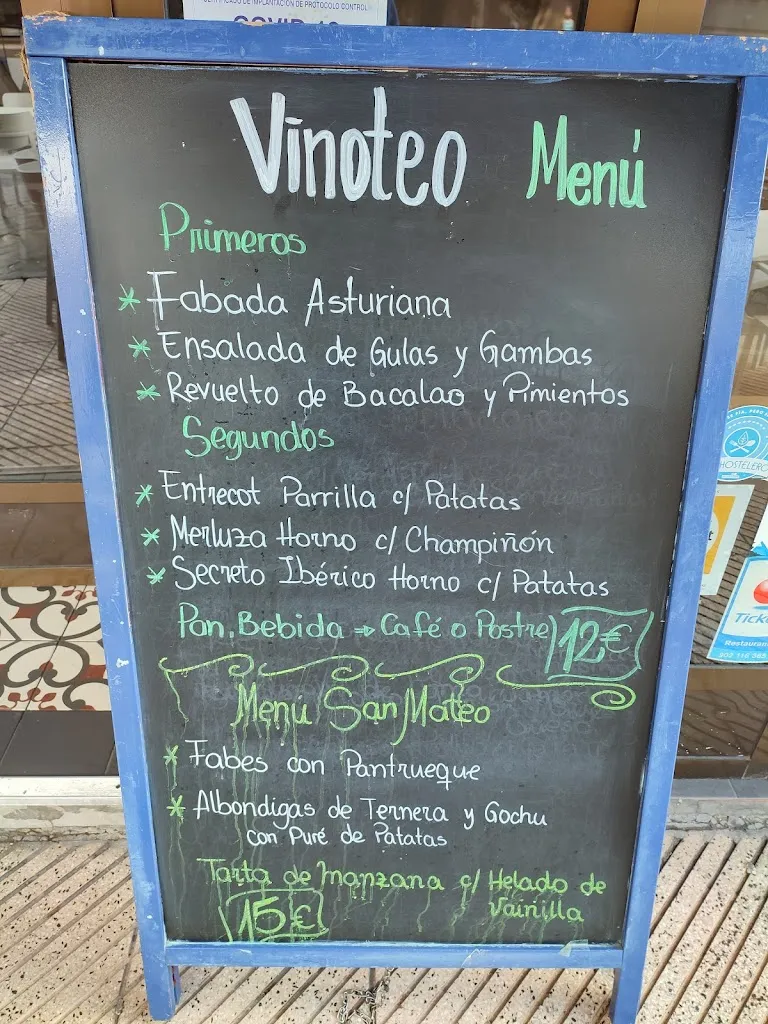 CERTIFICADO DE IMPLANTACIÓN DE PROTOCOLO CONTROL
COVID-19
Vinoteo Menú
Primeros
* Fabada Asturiana
* Ensalada de Gulas y Gambas
* Revuelto de Bacalao y Pimientos
Segundos
* Entrecot Parrilla c/ Patatas
* Merluza Horno c/ Champiñón
* Secreto Ibérico Horno c/ Patatas
Pan, Bebida → Café o Postre 12€
Menú San Mateo
* Fabes con Pantrueque
* Albondigas de Ternera y Gochu
con Puré de Patatas
Tarta de manzana c/ Helado de
Vainilla
15€
HOSTELERO
Ticke
Restauran